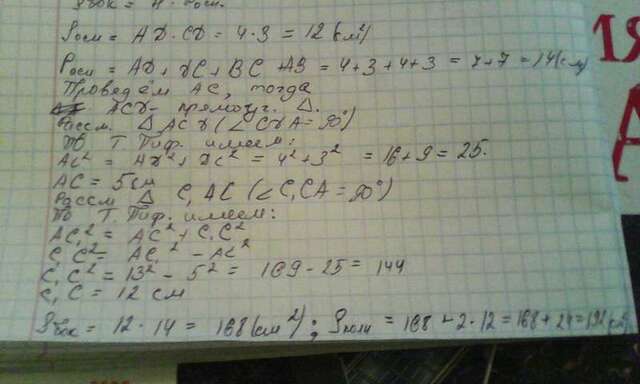 Sбок = H · Pосн.
Sосн = AD · CD = 4 · 3 = 12 (см²)
Pосн = AD + DC + BC + AB = 4 + 3 + 4 + 3 = 7 + 7 = 14 (см)
Проведём AC, тогда
ACD - прямоуг. Δ.
Рассм. Δ ACD (∠CDA = 90°)
По Т. Пиф. имеем:
AC² = AD² + DC² = 4² + 3² = 16 + 9 = 25.
AC = 5 см
Рассм Δ C₁AC (∠C₁CA = 90°)
По Т. Пиф. имеем:
AC₁² = AC² + C₁C²
C₁C² = AC₁² - AC²
C₁C² = 13² - 5² = 169 - 25 = 144
C₁C = 12 см
Sбок = 12 · 14 = 168 (см²); Sполн = 168 + 2 · 12 = 168 + 24 = 192 (см²)